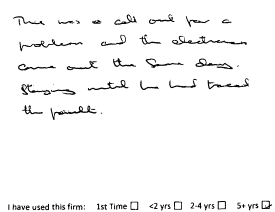 This was a call out for a
problem and the electrician
came out the same day.
Staying until he had traced
the fault.
I have used this firm: 1st Time ☐ <2 yrs ☐ 2-4 yrs ☐ 5+ yrs ☑